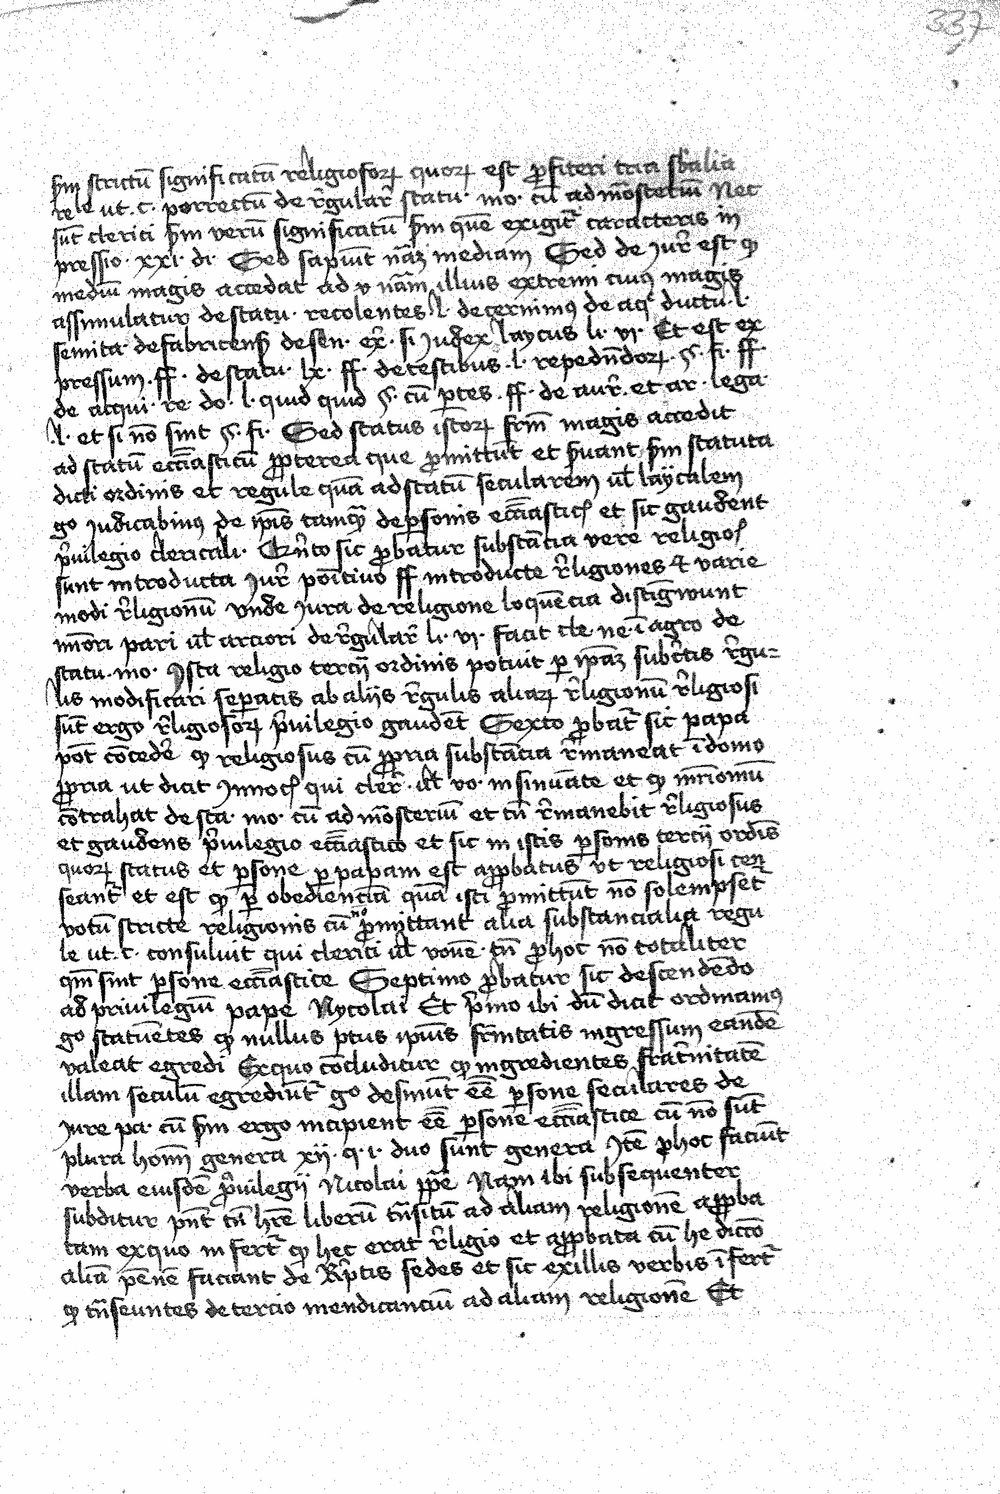 337
ẜm strictū significatū religiosoꝝ quoꝝ est ꝓfiteri tria sb̄alia
re le ut. c. porrectum de r̄gular̄ statu. mo. cū ad mōsteriū Nec
sūt clerici ẜm verū significatū ẜm quē exigit᷑ caracteris in
pressio. xxi. di. Sed sapiūt nāꝫ mediam Sed de Jur̄ est ꝙ
mediū magis accedat ad v nām illius extremi cuiꝯ magis
assimulatur de statu. recolentes l. decernimꝯ de aq̄ ductu. l.
semita de fabricensꝭ de sen. ex̄. si Judex laycus li. vi. Et est ex
pressum. ff. de statu. lx. ff. de testibus. l. repedūdoꝝ. §. fi. ff.
de acqui. re. do. l. quid quid §. cū ꝑtes. ff. de aur̄. et ar. lega
l. et si nō sint §. fi. Sed status istoꝝ frm̄ magis accedit
ad statū ecc̄iasticū ꝓpterea que ꝓmittūt et ẜuant ẜm statuta
dicti ordinis et regule quā ad statū secularem ul̄ laycalem
go Judicabimꝯ de ip̄is tamqȝ de ꝑsonis ecc̄iasticꝭ et sic gaudent
p̄uilegio clericali. Qn̄to sic ꝓbatur substācia vere religioꝭ
sunt introducta Jur̄ poītiuo ff introducte r̄ligiones ⁊ varie
modi r̄ligionū vnde Jura de religione loquēcia distīgwunt
mōri pari ul̄ arciori de r̄gular̄ li. vi. facit cle ne ī agro de
statu. mo. Ista religio tercij ordinis potuit ꝑ ip̄aꝫ sub c̄tis r̄gu-
lis modificari seꝑatis ab alijs r̄gulis aliaꝝ r̄ligionū r̄ligiosi
sūt ergo r̄ligiosoꝝ p̄uilegio gaudēt Sexto ꝓbat᷑ sic papa
pōt cōceder̄ ꝙ religiosus cū ꝓpria substācia r̄maneat ī domo
ꝓpria ut dicit Innocꝭ qui cler̄. ul̄ vo. insinuāte et ꝙ mr̄ioniū
cōtrahat de sta. mo. cū ad mōsteriū et tn̄ r̄manebit r̄ligiosus
et gaudens p̄uilegio ecc̄iastico et sic in istis ꝑsonis tercij ordīs
quoꝝ status et ꝑsone ꝑ papam est apꝓbatus ut religiosi cen
seant᷑ et est ꝙ ꝑ obedienciā quā isti ꝓmittūt nō solempset
votū stricte religionis cū nō ꝓmittant alia substancialia regu
le ut. c. consuluit qui clerici ul̄ vouē. tn̄ ꝓ hoc nō totaliter
qm̄ sint ꝑsone ecc̄iastice Septimo ꝓbatur sic descendēdo
ad privilegiū pape Nycolai Et p̄mo ibi dū dicit ordinamꝯ
go statuētes ꝙ nullus ptus ip̄ius fr̄nitatis ingressum eandē
valeat egredi Ex quo cōcluditur ꝙ ingredientes frat̄nitatē
illam seculū egrediūt᷑ go desinūt eē̄ ꝑsone seculares de
Jure pa. cū ẜm ergo incipient eē̄ ꝑsone ecc̄iastice cū nō sūt
plura hoīm genera xij. q. i. duo sunt genera Itē ꝓ hoc faciūt
verba eiusdē p̄uilegij Nicolai pp̄e Nam ibi subsequenter
subditur pn̄t tn̄ hr̄e liberū tn̄sitū ad aliam religionē apꝓba
tam ex quo infert᷑ ꝙ hec erat r̄ligio et apꝓbata cū he dictō
aliā pēnē faciant de Rp̄tis sedes et sic ex illis verbis īfert᷑
ꝙ tn̄seuntes de tercio mendicanciū ad aliam religionē Et